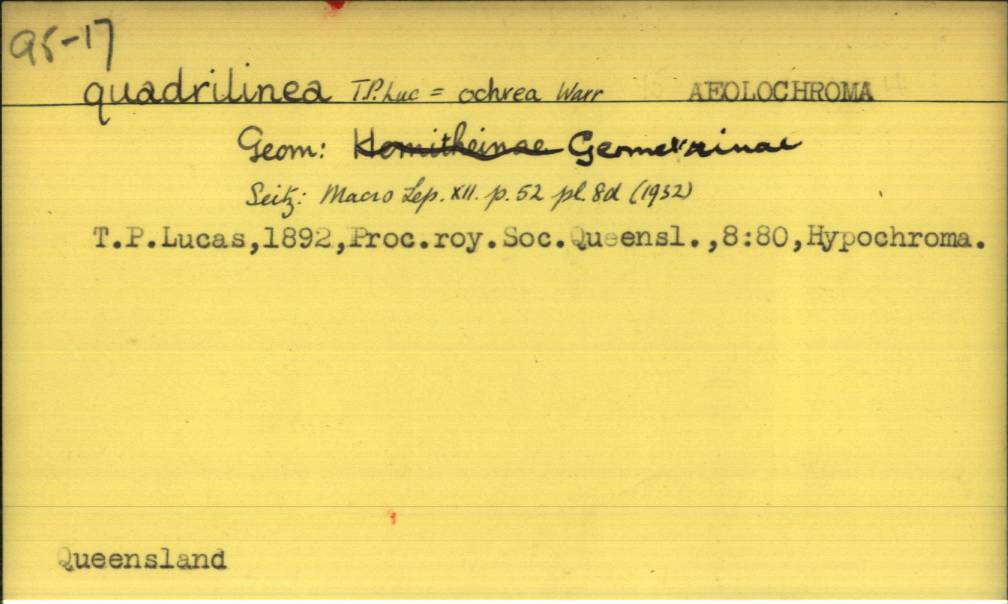 95-17
quadrilinea T.P. Luc = ochrea Warr AEOLOCHROMA
Geom: Hemitheinae Geometrinae
Seitz: Macro Lep. XII. p. 52 pl. 8d (1932)
T.P.Lucas,1892,Proc.roy.Soc.Queensl.,8:80,Hypochroma.
Queensland